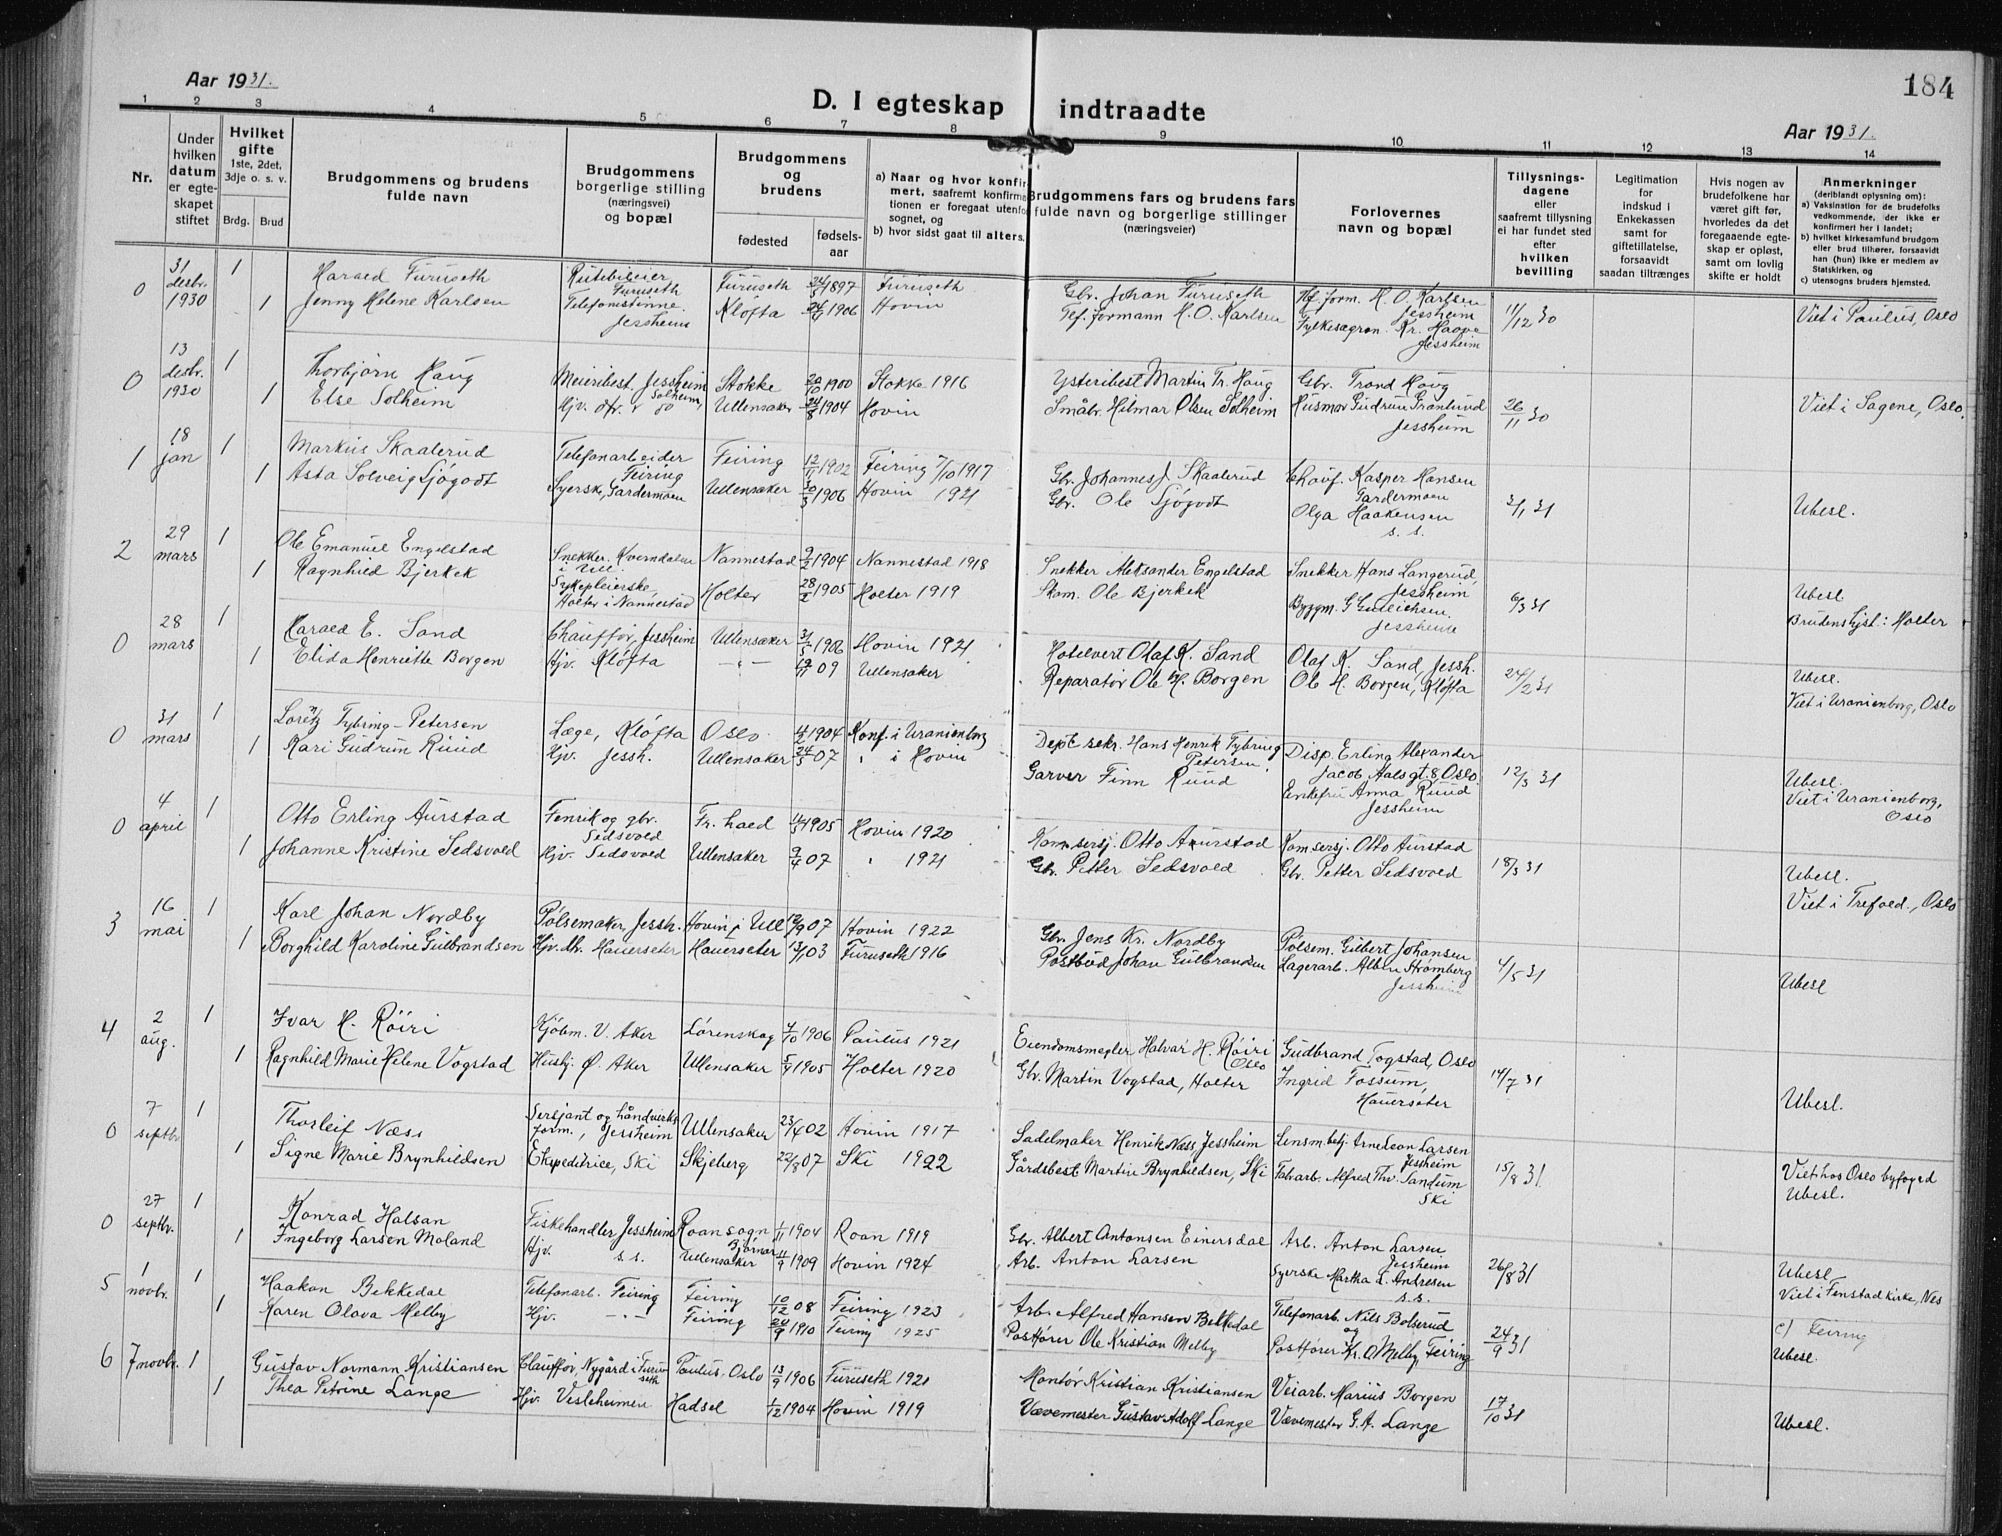 Aar 1931.
184
D. I egteskap indtraadte
Aar 1931.
1 2 3 4 5 6 7 8 9 10 11 12 13 14
Nr.
Under hvilken datum er egte-skapet stiftet
Hvilket gifte
1ste, 2det, 3dje o. s. v.
Brdg. Brud
Brudgommens og brudens fulde navn
Brudgommens borgerlige stilling (næringsvei) og bopæl
Brudgommens og brudens
fødested
fødsels-aar
a) Naar og hvor konfir-mert, saafremt konfirma-tionen er foregaat utenfor sognet, og
b) hvor sidst gaat til alters.
Brudgommens fars og brudens fars fulde navn og borgerlige stillinger (næringsveier)
Forlovernes navn og bopæl
Tillysnings-dagene eller saafremt tillysning ei har fundet sted efter hvilken bevilling
Legitimation for indskud i Enkekassen samt for giftetillatelse, forsaavidt saadan tiltrænges
Hvis nogen av brudefolkene har været gift før, hvorledes da det foregaaende egte-skap er opløst, samt om lovlig skifte er holdt
Anmerkninger
(deriblandt oplysning om):
a) Vaksination for de brudefolks vedkommende, der ikke er konfirmert her i landet;
b) hvilket kirkesamfund brudgom eller brud tilhører, forsaavidt han (hun) ikke er medlem av Statskirken, og
c) utensogns bruders hjemsted.
0 31 desbr. 1930 1 Harald Furuseth Rutebileier Furuseth Furuseth 24/5 1897 Furuseth Gbr. Johan Furuseth Tlf. form. H. O. Karlsen Jessheim 11/12 30 Viet i Paulus, Oslo
1 Jenny Helene Karlsen Telefonistinne Jessheim Kløfta 24/11 1906 Hovin Tlf. formann H. O. Karlsen Fylkesagron. Kr. Haave Jessheim
0 13 desbr. 1930 1 Thorbjørn Haug Meieribest. Jessheim Stokke 20/10 1900 Stokke 1916 Ysteribest Martin Tr. Haug Gbr. Trond Haug 26/11 30 Viet i Sagene, Oslo.
1 Else Solheim Hjv. dtr. Solheim, do Ullensaker 24/8 1904 Hovin Småbr. Hilmar Olsen Solheim Husmor Gudrun Granlund Jessheim
1 18 jan 1 Markus Skaalerud Telefonarbeider Feiring Feiring 12/11 1902 Feiring 7/10 1917 Gbr. Johannes J. Skaalerud Chauf. Kasper Hansen Gardermoen 2/1 31 Ubesl.
1 Asta Solveig Sjøgodt Syersk, Gardermoen Ullensaker 30/3 1906 Hovin 1921 Gbr. Ole Sjøgodt Olga Haakensen s. s.
2 29 mars 1 Ole Emanuel Engelstad Snekker. Kverndalen i Ull. Nannestad 9/2 1904 Nannestad 1918 Snekker Aleksander Engelstad Snekker Hans Langerud, Jessheim 6/3 31 Ubesl
1 Ragnhild Bjerkek Sykepleierske, Holter i Nannestad Holter 28/2 1905 Holter 1919 Skom. Ole Bjerkek Bygm. G Gulichsen Jessheim Brudens hjst: Holter
0 28 mars 1 Harald E. Sand Chauffør, Jessheim Ullensaker 31/5 1906 Hovin 1921 Hotelvert Olaf K. Sand Olaf K. Sand, Jessh. 24/2 31 Ubesl.
1 Elida Henriette Borgen Hjv. Kløfta -"- 19/11 09 Ullensaker Reparatør Ole H. Borgen Ole H. Borgen, Kløfta Viet i Uranienborg, Oslo
0 31 mars 1 Loretz Tybring-Petersen Læge, Kløfta Oslo 4/2 1904 Konf. i Uranienborg Dept. sekr. Hans Henrik Tybring Petersen Disp. Erling Alexander Jacob Aalsgt. 8 Oslo 12/3 31 Ubesl
1 Kari Gudrun Ruud Hjv. Jessh. Ullensaker 24/5 07 " i Hovin Garver Finn Ruud Enkefru Anna Ruud Jessheim Viet i Uranienborg, Oslo
0 4 april 1 Otto Erling Aurstad Fenrik og gbr. Sedsvold Fr. hald 4/5 1905 Hovin 1920 Kom. sersj. Otto Aurstad Kom. sersj. Otto Aurstad 18/3 31 Ubesl.
1 Johanne Kristine Sedsvold Hjv. Sedsvold Ullensaker 9/4 07 " 1921 Gbr. Petter Sedsvold Gbr. Petter Sedsvold Viet i Trefold., Oslo
3 16 mai 1 Karl Johan Nordby Pølsemaker, Jessh. Hovin i Ull 12/9 07 Hovin 1922 Gbr. Jens Kr. Nordby Pølsem. Gilbert Johansen 4/5 31 Ubesl
1 Borghild Karoline Gulbrandsen Hjv. dtr. Hauerseter Hauerseter 13/1 03 Furuseth 1916 Postbud Johan Gulbrandsen Lagerarb. Albin Strømberg Jessheim
4 2 aug. 1 Ivar H. Røiri Kjøbm. V. Aker Lørenskog 7/10 1906 Paulus 1921 Eiendomsmegler Halvar H. Røiri Oslo Gudbrand Togstad, Oslo 14/7 31 Ubesl.
1 Ragnhild Marie Helene Vogstad Husbj. Ø. Aker Ullensaker 5/9 1905 Holter 1920 Gbr. Martin Vogstad, Holter Ingrid Fossum, Hauerseter
0 7 septbr 1 Thorleif Næss Sersjant og håndverks form., Jessheim Ullensaker 23/4 02 Hovin 1917 Sadelmaker Henrik Næss Jessheim Lensm. betj. Arne Leon Larsen Jessheim 15/8 31 Viet hos Oslo byfoged
1 Signe Marie Brynhildsen Ekspeditrice, Ski Skjeberg 22/8 07 Ski 1922 Gårdsbest Martin Brynhildsen, Ski Fabarb. Alfred Thv. Sandum Ski Ubesl.
0 27 septbr. 1 Konrad Halsan Fiskehandler Jessheim Roan sogn Bjørnør 1/11 1904 Roan 1919 Gbr. Albert Antonsen Einersdal Arb. Anton Larsen Jessheim 26/8 31 Ubesl
1 Ingeborg Larsen Moland Hjv. s. s. Ullensaker 11/9 1909 Hovin 1924 Arb. Anton Larsen Syerske Martha L. Andresen s. s. Viet i Fenstad kirke, Nes
5 1 novbr. 1 Haakon Bekkedal Telefonarb. Feiring Feiring 10/12 08 Feiring 1923 Arb. Alfred Hansen Bekkedal Telefonarb. Nils Bolserud og 24/9 31 c) Feiring
1 Karen Olava Melby Hjv. -"- Feiring 20/9 1910 Feiring 1925 Postfører Ole Kristian Melby Postfører Kr. O. Melby Feiring Ubesl.
6 7 novbr. 1 Gustav Normann Kristiansen Chauffør, Nygård i Furuseth Paulus, Oslo 13/9 1906 Furuseth 1921 Montør Kristian Kristiansen Veiarb. Marius Borgen 17/10 31 Ubesl.
1 Thea Petrine Lange Hjv. Vesleheimen Hadsel 1/12 1904 Hovin 1919 Vævemester Gustav Adolf Lange Vævemester G. A. Lange